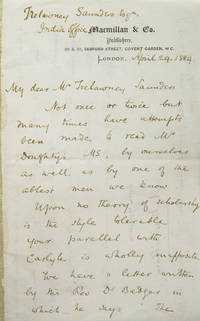 Trelawney Saunders Esqre
India Office
Macmillan & Co.
Publishers,
29 & 30, BEDFORD STREET, COVENT GARDEN, W.C.
LONDON, April 29. 1884
My dear Mr Trelawney Saunders
Not once or twice but
many times have attempts
been made to read Mr
Doughty's MS, by ourselves
as well as by one of the
ablest men we know
Upon no theory of scholarship
is the style tolerable
your parallel with
Carlyle is wholly inapposite
We have a letter written
by the Rev Dr Badger in
which he says "The